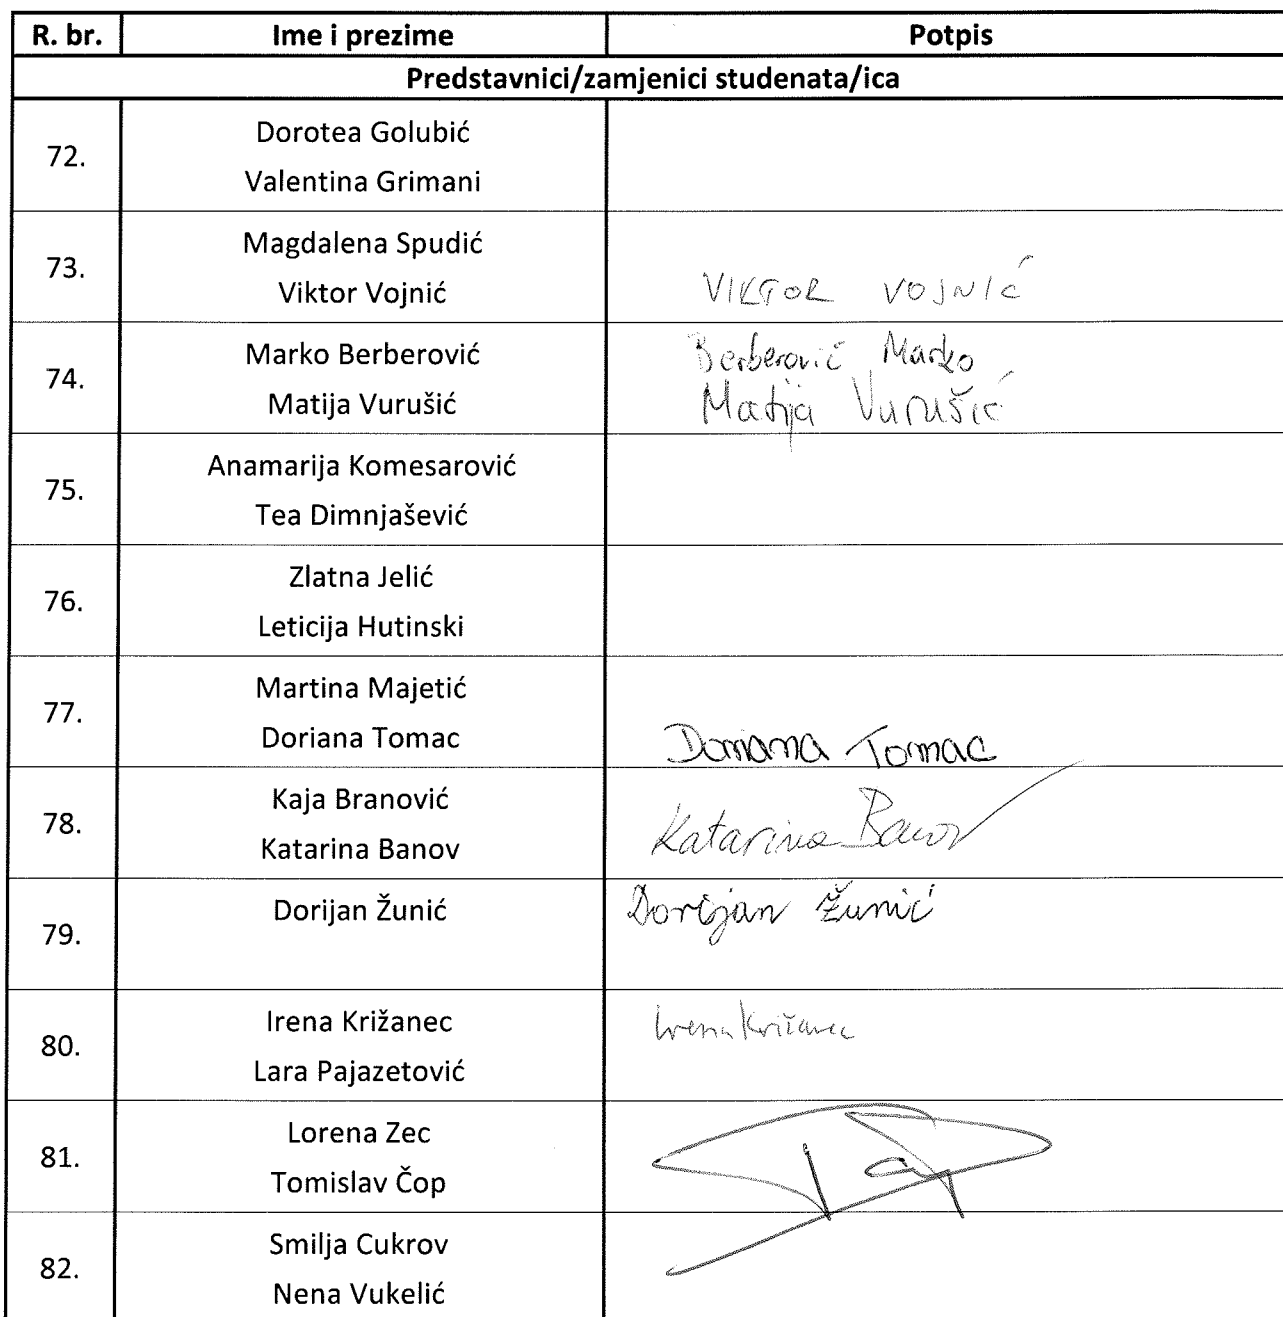 R. br. Ime i prezime Potpis
Predstavnici/zamjenici studenata/ica
72. Dorotea Golubić
Valentina Grimani
73. Magdalena Spudić
Viktor Vojnić VIKTOR VOJNIĆ
74. Marko Berberović Berberović Marko
Matija Vurušić Matija Vurušić
75. Anamarija Komesarović
Tea Dimnjašević
76. Zlatna Jelić
Leticija Hutinski
77. Martina Majetić
Doriana Tomac Doriana Tomac
78. Kaja Branović
Katarina Banov Katarina Banov
79. Dorijan Žunić Dorijan Žunić
80. Irena Križanec Irena Križanec
Lara Pajazetović
81. Lorena Zec
Tomislav Čop
82. Smilja Cukrov
Nena Vukelić